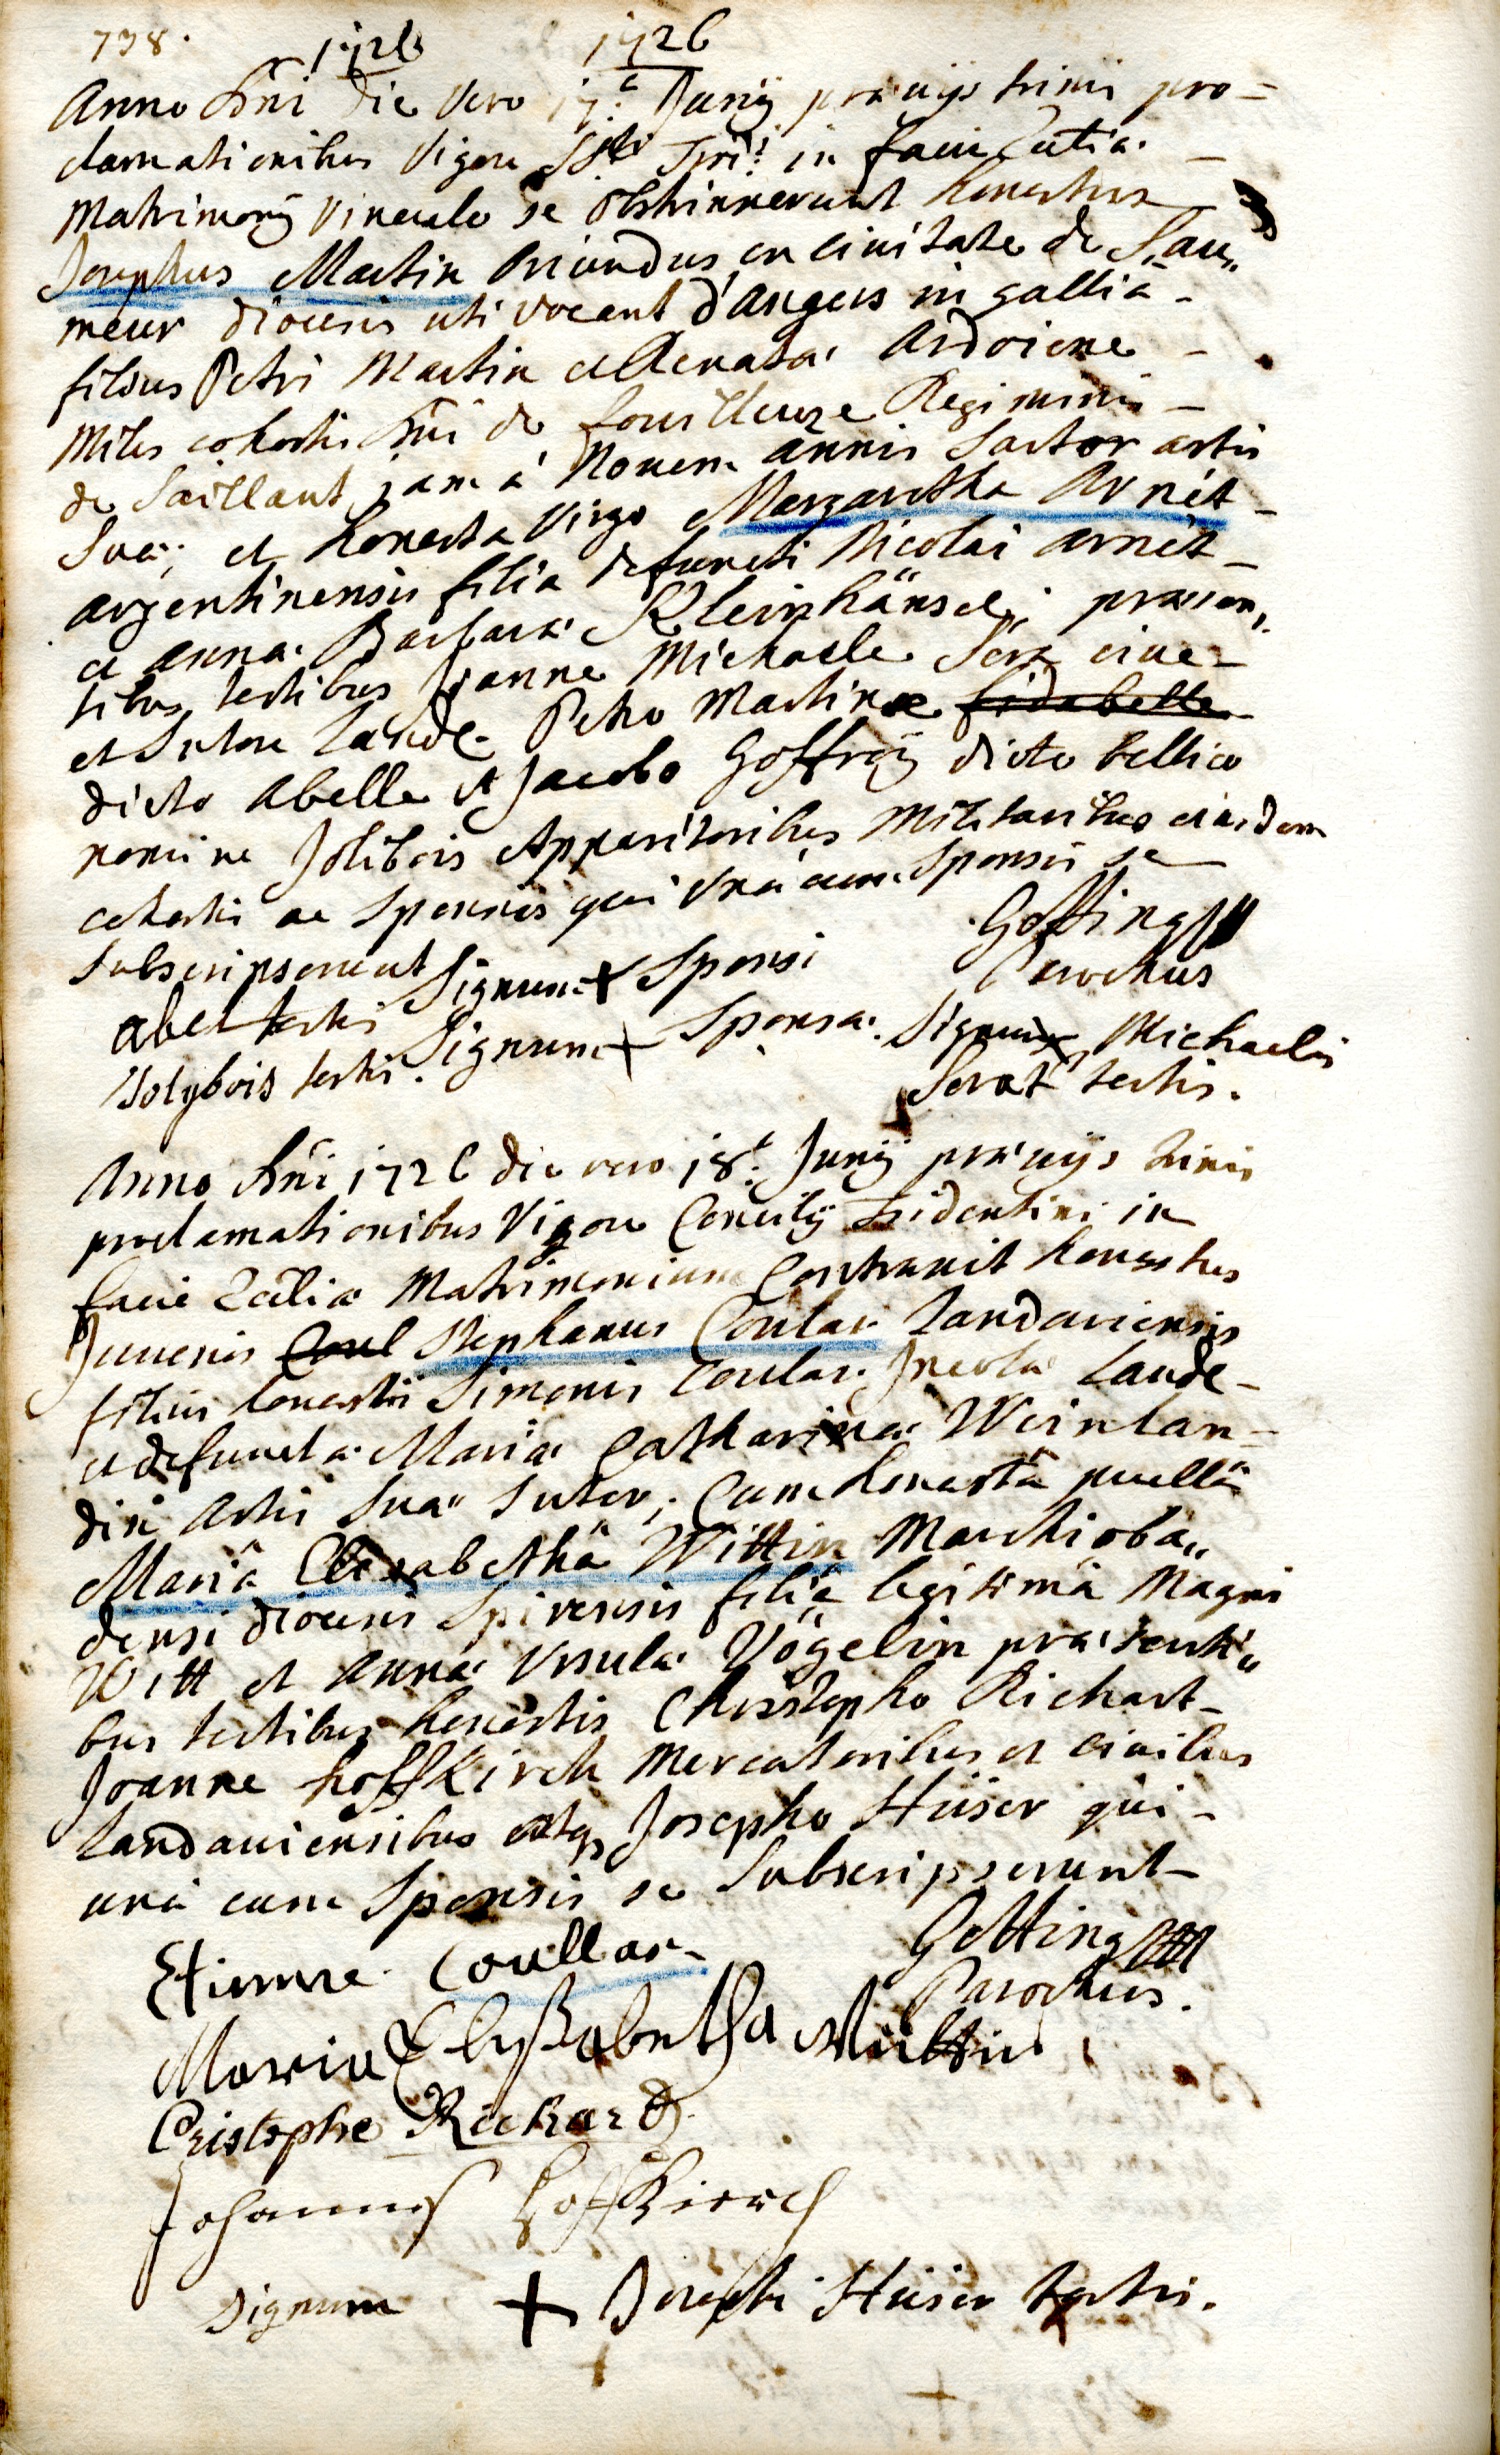 738.
1726 1726
Anno Dñi die vero 17.ª Junÿ prævijs trinis pro=
clamationibus vigore SSti Trid: in facie Eccliæ
Matrimonÿ vinculo se obstrinxerunt honestus
Josephus Martin oriundus ex civitate de Sau„
meur diocesis uti vocant d'angers in gallia -
filius Petri Martin et Renatæ Ardoiene -
Miles cohortis Dñi de fouilleuse Regiminis -
de Saillant jam à Novem annis Sartor artis
Suæ; et honesta virgo Margaretha Arnét -
argentinensis filia defuncti Nicolai Arnét -
et Anna Barbaræ Kleinhänsel; præsen„
tibus testibus Joanne Michaele Serz cive -
et Sutore Landæ. Petro Martinæ fidabelle
dicto Abelle et Jacobo Goffroÿ dicto bellico
nomine Jolibois Apparitoribus Militaribus eiusdem
cohortis ac Sponsis qui unà cum Sponsis se
Subscripserunt Gotting
abel testis Signum + Sponsi Parochus
Jolybois testis. Signum + Sponsæ. Signum x Michaelis
Serat testis.
Anno Dñi 1726 die vero 18.ª Junÿ prævijs trinis
proclamationibus vigore Concilÿ Tridentini in
facie Eccliæ Matrimonium Contraxit honestus
Juvenis Coul Stephanus Coular Landaviensis
filius honesti Simonis Coular Incolæ Landæ -
et defunctæ Mariæ Catharinæ Weinlan=
din artis suæ Sutor; Cum honestâ puellâ
Mariâ Elisabethâ Wittin Marchioba„
densi diocesis Spirensis filiâ legitimâ Magni
Witt et Annæ Ursulæ Vögelin præsenti„
bus testibus honestis Christopho Richart -
Joanne hoffkirch Mercatoribus et civibus
Landaviensibus atq Josepho Hüser qui -
unà cum Sponsis se Subscripserunt -
Etienne Coullar - Gotting
Parochus.
Maria Elyßabetha Wittin
Cristophe Richard
Johannes Hoffkirch
Signum + Josephi Hüser testis.